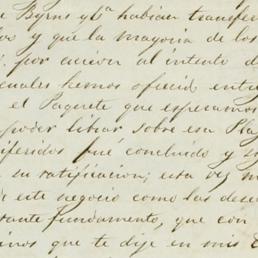 e Byrns y Ca habian transfer
os y que la mayoria de los
por accion al intento d
cuales hemos ofrecid entr
el Paquete que esperamos
poder librar sobre esa Pla
iferidos fué concluido y s
su ratificacion; esta vez m
de este negocio como las dese
rante fundamento, que con
inos que te dije en mis